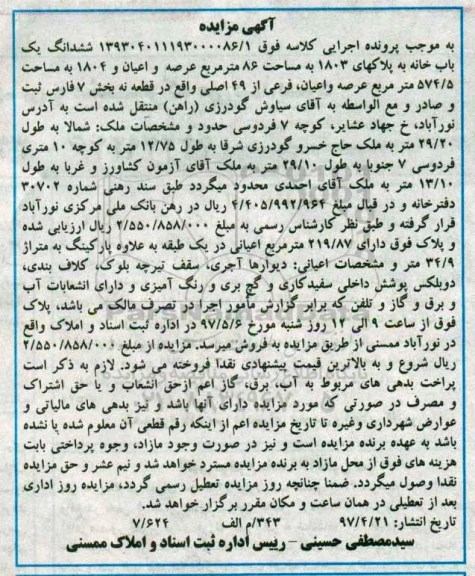 آگهی مزایده
به موجب پرونده اجرایی کلاسه فوق ۱۳۹۳۰۴۰۱۱۱۹۳۰۰۰۰۸۶/۱ ششدانگ یک
باب خانه به پلاکهای ۱۸۰۳ به مساحت ۸۶ مترمربع عرصه و اعیان و ۱۸۰۴ به مساحت
۵۷۴/۵ متر مربع عرصه واعیان، فرعی از ۴۹ اصلی واقع در قطعه نه بخش ۷ فارس ثبت
و صادر و مع الواسطه به آقای سیاوش گودرزی (راهن) منتقل شده است به آدرس
نورآباد، خ جهاد عشایر، کوچه ۷ فردوسی حدود و مشخصات ملک: شمالا به طول
۲۹/۲۰ متر به ملک حاج خسرو گودرزی شرقا به طول ۱۲/۷۵ متر به کوچه ۱۰ متری
فردوسی ۷ جنوبا به طول ۲۹/۱۰ متر به ملک آقای آزمون کشاورز و غربا به طول
۱۳/۱۰ متر به ملک آقای احمدی محدود میگردد طبق سند رهنی شماره ۳۰۷۰۲
دفترخانه و در قبال مبلغ ۴/۴۰۵/۹۹۲/۹۶۴ ریال در رهن بانک ملی مرکزی نورآباد
قرار گرفته و طبق نظر کارشناس رسمی به مبلغ ۲/۵۵۰/۸۵۸/۰۰۰ ریال ارزیابی شده
و پلاک فوق دارای ۲۱۹/۸۷ مترمربع اعیانی در یک طبقه به علاوه پارکینگ به متراژ
۳۴/۹ متر و مشخصات اعیانی: دیوارها آجری، سقف تیرچه بلوک، کلاف بندی،
دوبلکس پوشش داخلی سفیدکاری و گچ بری و رنگ آمیزی و دارای انشعابات آب
و برق و گاز و تلفن که برابر گزارش مأمور اجرا در تصرف مالک می باشد، پلاک
فوق از ساعت ۹ الی ۱۲ روز شنبه مورخ ۹۷/۵/۶ در اداره ثبت اسناد و املاک واقع
در نورآباد ممسنی از طریق مزایده به فروش میرسد. مزایده از مبلغ ۲/۵۵۰/۸۵۸/۰۰۰
ریال شروع و به بالاترین قیمت پیشنهادی نقدا فروخته می شود. لازم به ذکر است
پراخت بدهی های مربوط به آب، برق، گاز اعم ازحق انشعاب و یا حق اشتراک
و مصرف در صورتی که مورد مزایده دارای آنها باشد و نیز بدهی های مالیاتی و
عوارض شهرداری وغیره تا تاریخ مزایده اعم از اینکه رقم قطعی آن معلوم شده یا نشده
باشد به عهده برنده مزایده است و نیز در صورت وجود مازاد، وجوه پرداختی بابت
هزینه های فوق از محل مازاد به برنده مزایده مسترد خواهد شد و نیم عشر و حق مزایده
نقدا وصول میگردد. ضمنا چنانچه روز مزایده تعطیل رسمی گردد، مزایده روز اداری
بعد از تعطیلی در همان ساعت و مکان مقرر برگزار خواهد شد.
تاریخ انتشار: ۹۷/۴/۲۱ ۳۴۳/م الف ۷/۶۲۴
سیدمصطفی حسینی - رییس اداره ثبت اسناد و املاک ممسنی